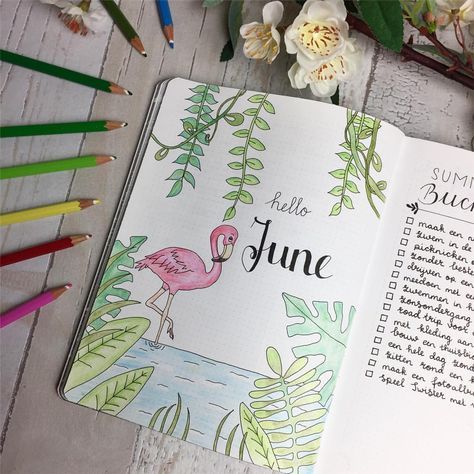 hello
June
SUMM
Buck
maak een
zwem in de
picknicken
zonder
drijven op een
meedoen met
zwemmen in
zonsondergang
road trip voor
met kleding aan
bouw een
een hele dag
zitten rond een
maak een
speel Twister met